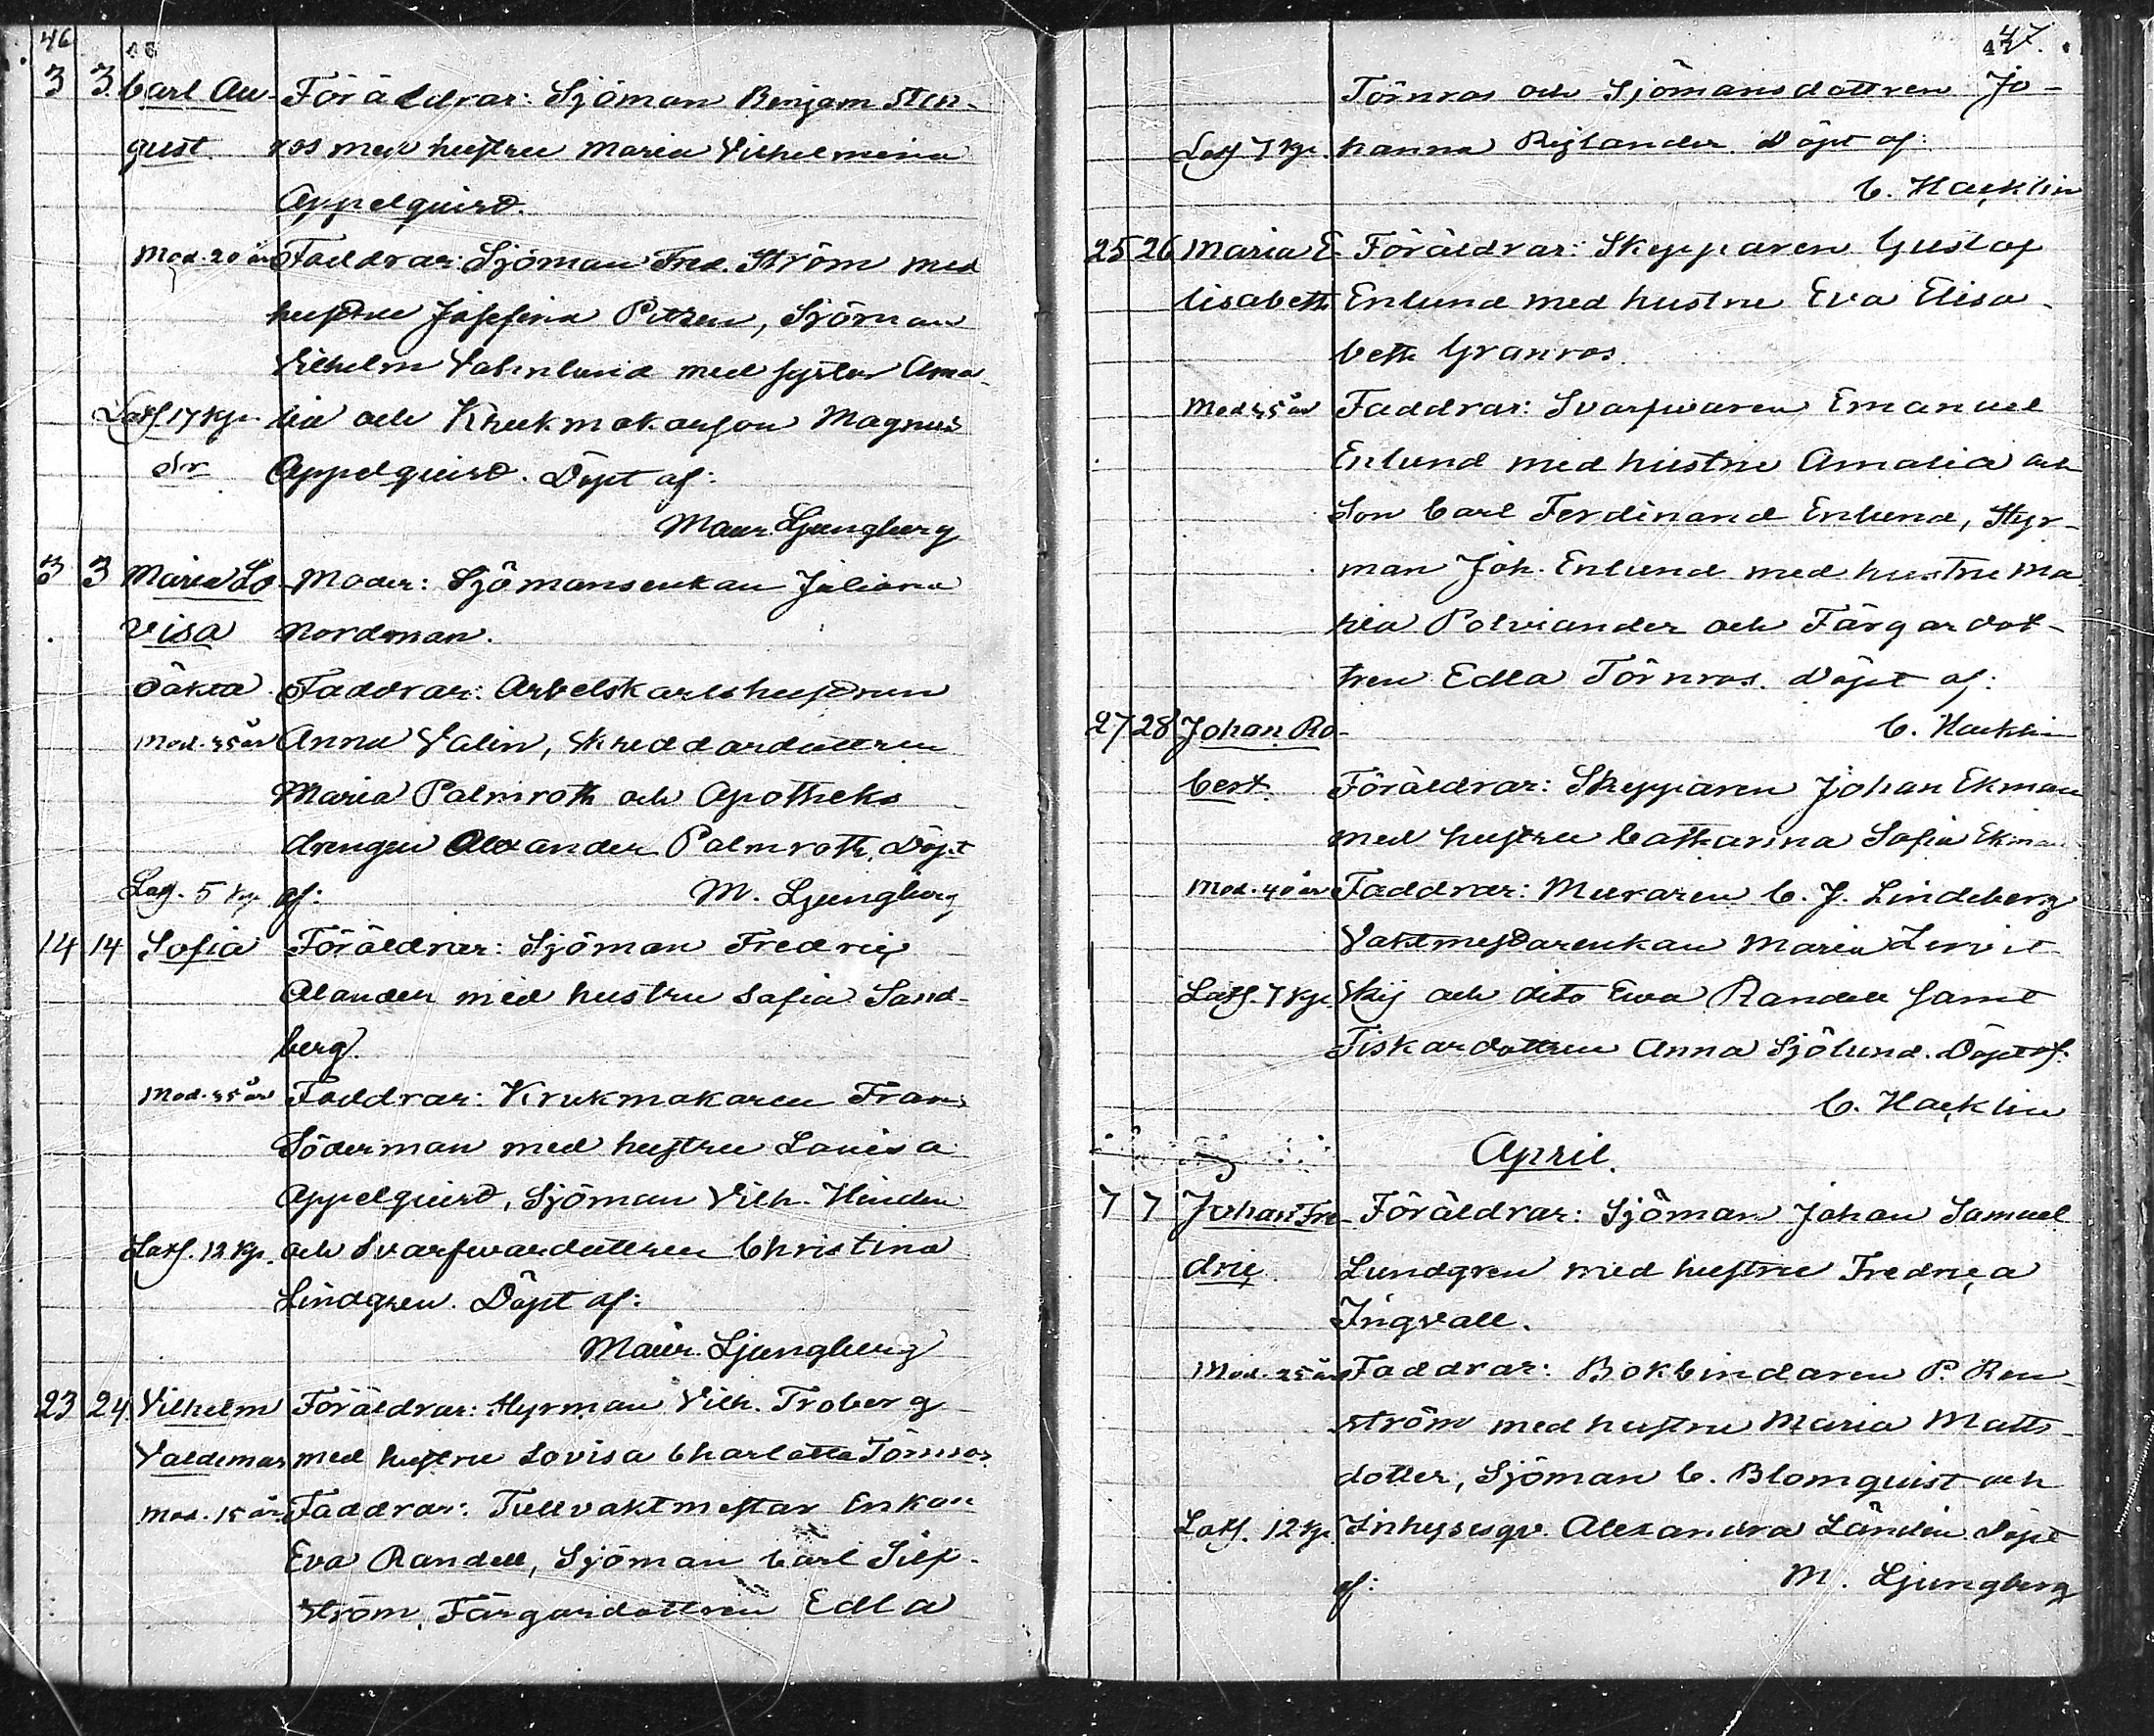 46
3 3 Carl Au- Föräldrar: Sjöman Benjam Sten-
gust. ros med hustru Maria Vilhelmina
Appelquist.
Mod. 20 år Faddrar: Sjöman Fred. Ström med
hustru Josefina Pitzen, Sjöman
Vilhelm Valenlund med syster Ama-
Laxf 17 kp. lia och Krukmakarson Magnus
Appelquist. Döpt af:
Maur. Ljungberg
3 3 Maria Lo- Moder: Sjömansenkan Juliana
visa Nordman.
oäkta Faddrar: Arbetskarlshustrun
Mod. 35 år Anna Valin, Skreddardottren
Maria Palmroth och Apotheks
drengen Alexander Palmroth. Döpt
Lag. 5 kp af: M. Ljungberg
14 14 Sofia Föräldrar: Sjöman Fredric
Alander med hustru Sofia Sand-
berg.
Mod. 35 år Faddrar: Krukmakaren Frans
Söderman med hustru Lovisa
Appelquist, Sjöman Vilh. Hinden
Laxf. 12 kp. och Svarfvardottren Christina
Lindgren. Döpt af:
Maur. Ljungberg
23 24 Vilhelm Föräldrar: Styrman Vilh. Troberg
Valdemar med hustru Lovisa Charlotta Törnros.
Mod. 15 år. Faddrar: Tullvaktmestar Enkan
Eva Randell, Sjöman Carl Silf-
ström, Färgardottren Edla
47.
Törnros och Sjömansdottren Jo-
Laxf 7 kp. hanna Rislander. Döpt af:
C. Hacklin
25 26 Maria E- Föräldrar: Skepparen Gustaf
lisabeth Enlund med hustru Eva Elisa-
beth Granros.
Mod 45 år Faddrar: Svarfvaren Emanuel
Enlund med hustru Amalia och
Son Carl Ferdinand Enlund, Styr-
man Joh. Enlund med hustru Ma
ria Polviander och Färgardot-
tren Edla Törnros. Döpt af:
27 28 Johan Ro- C. Hacklin
bert. Föräldrar: Skepparen Johan Ekman
med hustru Catharina Sofia Ekman
Mod. 40 år Faddrar: Muraren C. J. Lindeberg
Vaktmestarenkan Maria Levit-
Laxf. 7 kp. skij och dito Eva Randell samt
Fiskardottren Anna Sjölund. Döpt af:
C. Hacklin
April.
7 7 Johan Fre- Föräldrar: Sjöman Johan Samuel
dric Lundgren med hustru Fredrica
Ingvall.
Mod. 25 år Faddrar: Bokbindaren P. Ren-
ström med hustru Maria Matts-
dotter, Sjöman C. Blomquist och
Laxf. 12 kp. Inhysesqv. Alexandra Lündin. Döpt
af: M. Ljungberg